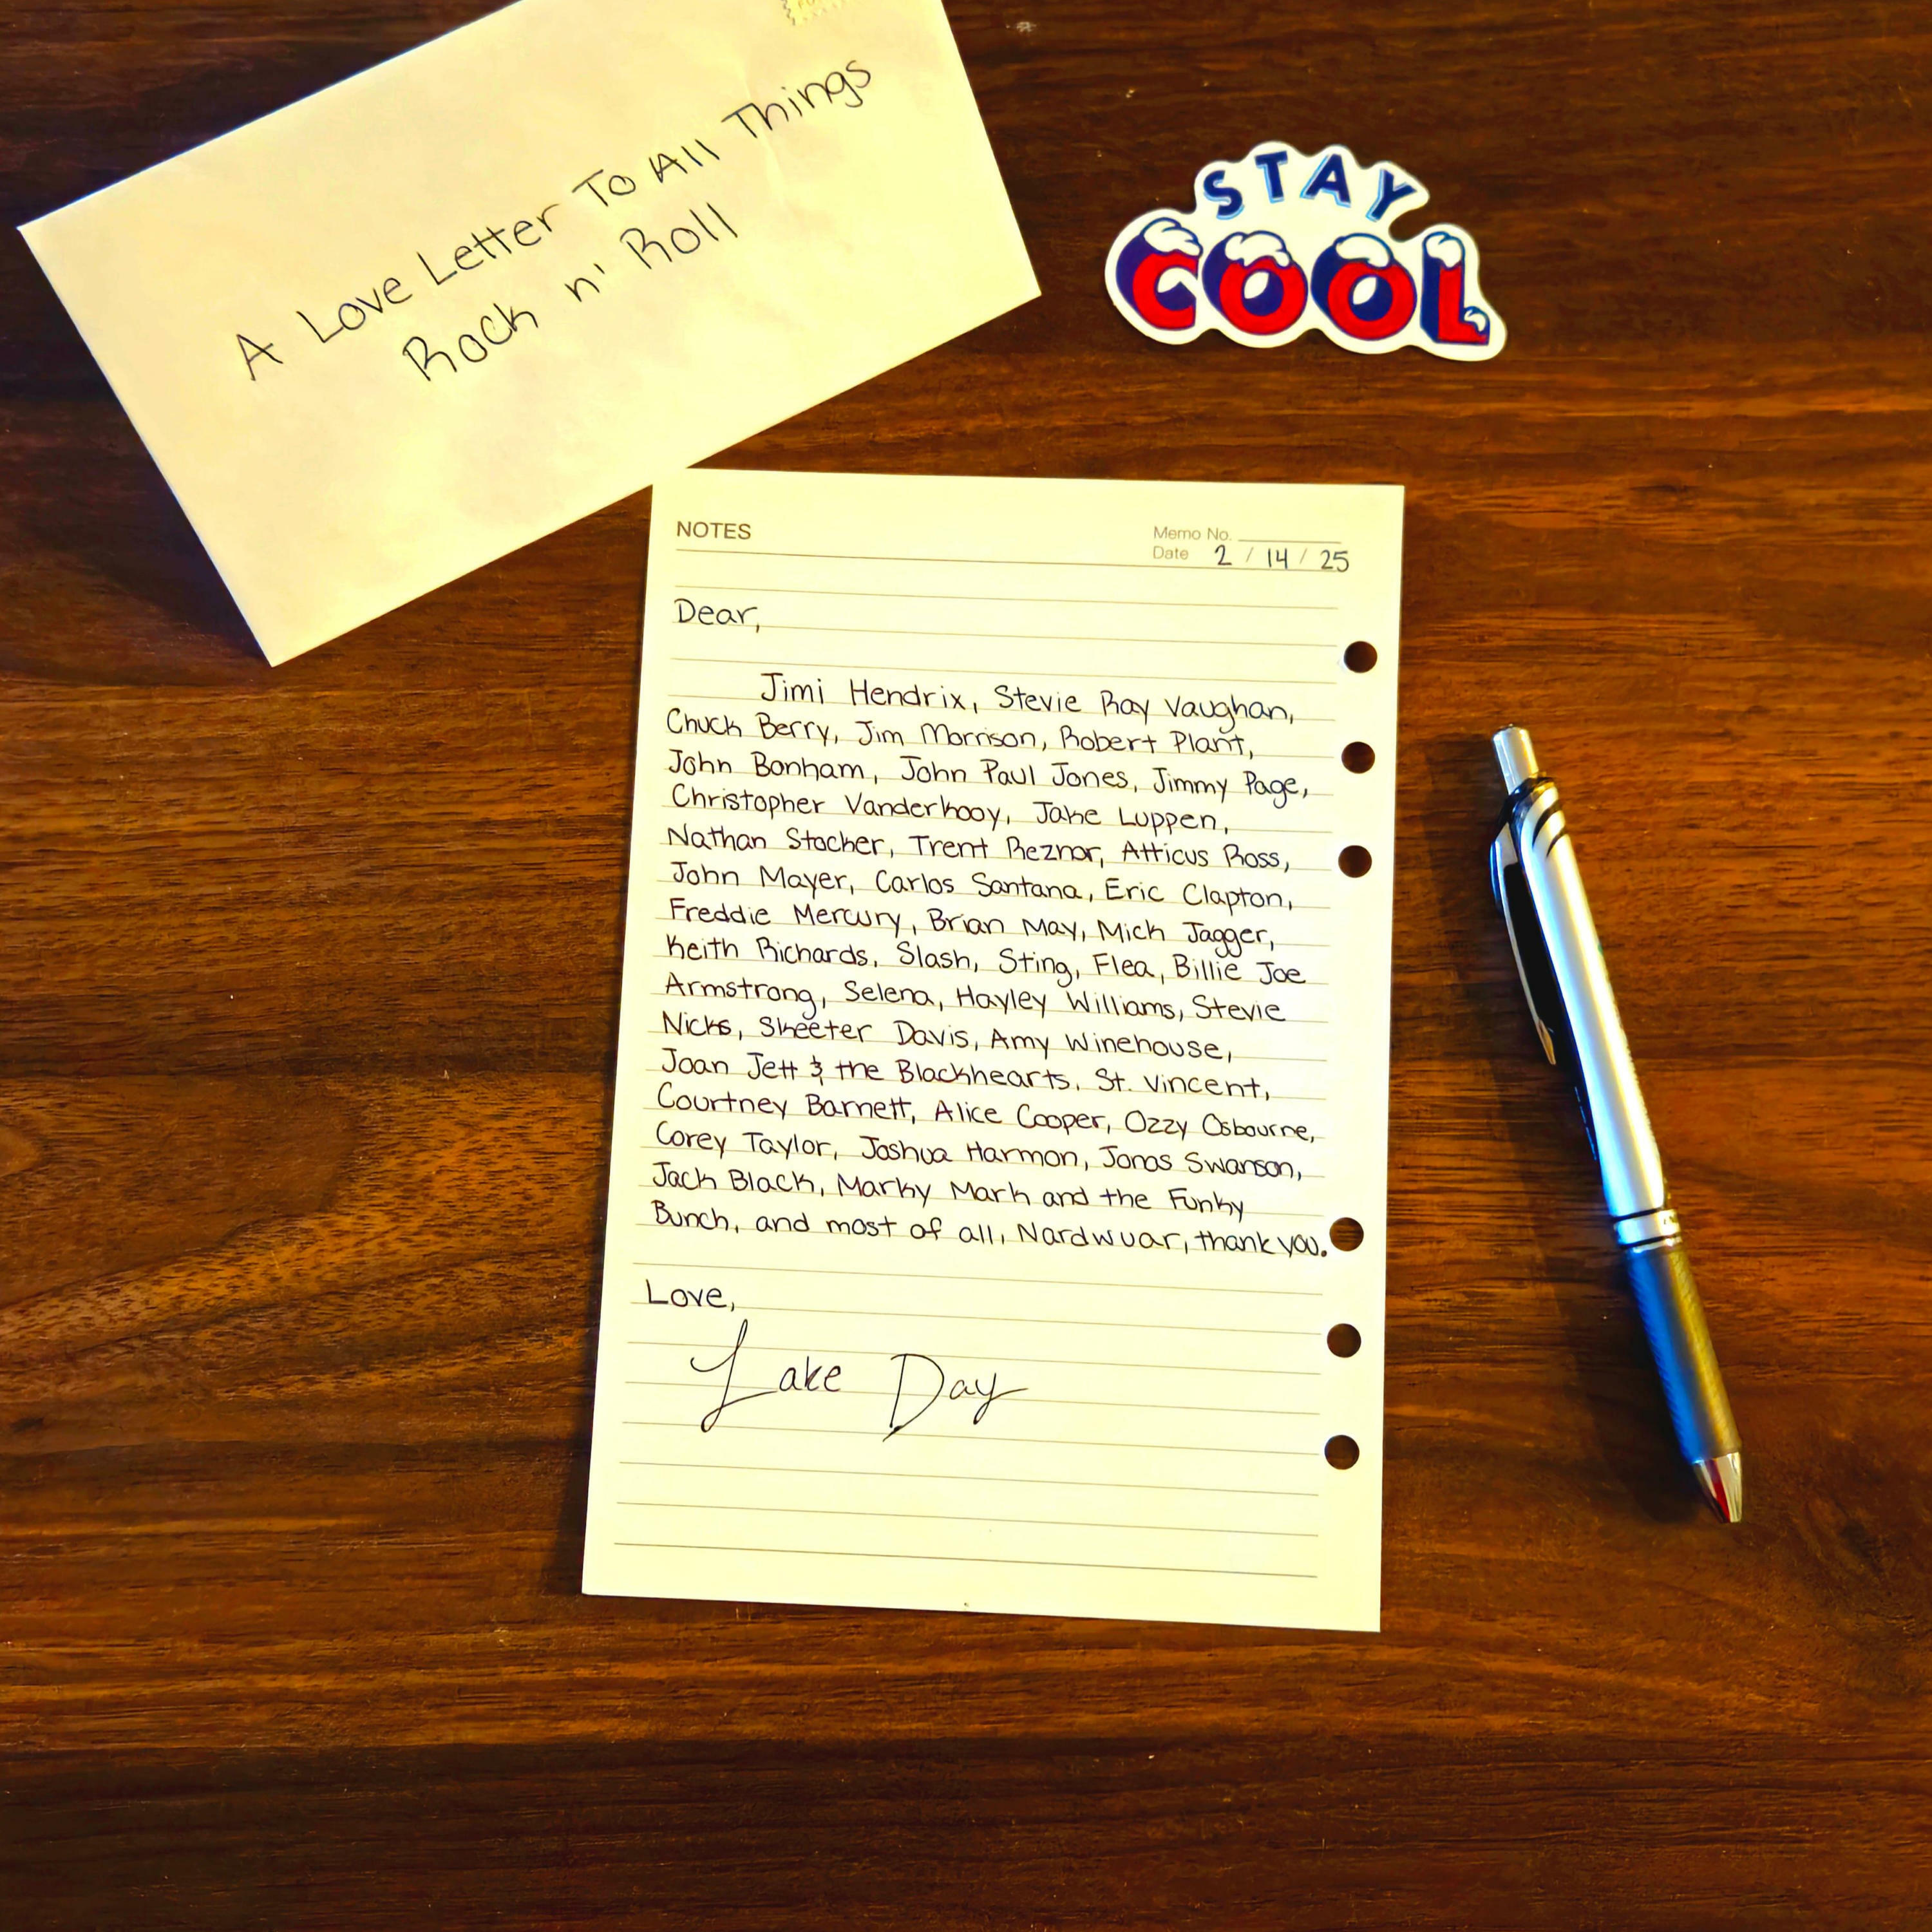 A Love Letter To All Things
Rock n' Roll
STAY
COOL
NOTES
Memo No.
Date 2 / 14 / 25
Dear,
Jimi Hendrix, Stevie Ray Vaughan,
Chuck Berry, Jim Morrison, Robert Plant,
John Bonham, John Paul Jones, Jimmy Page,
Christopher Vanderkooy, Jake Luppen,
Nathan Stocker, Trent Reznor, Atticus Ross,
John Mayer, Carlos Santana, Eric Clapton,
Freddie Mercury, Brian May, Mick Jagger,
Keith Richards, Slash, Sting, Flea, Billie Joe
Armstrong, Selena, Hayley Williams, Stevie
Nicks, Skeeter Davis, Amy Winehouse,
Joan Jett & the Blackhearts, St. Vincent,
Courtney Barnett, Alice Cooper, Ozzy Osbourne,
Corey Taylor, Joshua Harmon, Jonas Swanson,
Jack Black, Marky Mark and the Funky
Bunch, and most of all, Nardwuar, thank you.
Love,
Lake Day